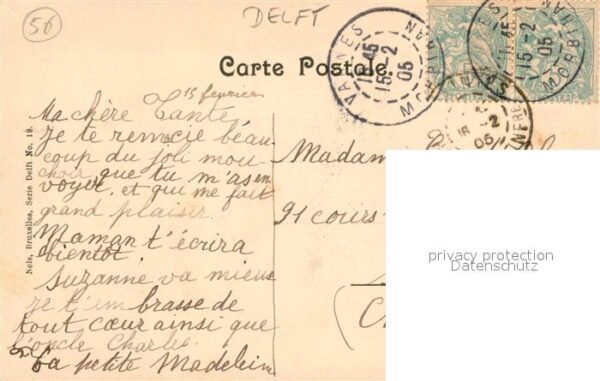 56
DELFT
Carte Postale.
VANNES
MORBIHAN
15 -2
05
MORBIHAN
15 -2
05
15 février
Ma chère Tante
Je te remercie beau-
coup du joli mou-
choir que tu m'as en
voyer. et qui me fait
grand plaisir
Maman t'écrira
bientôt.
Suzanne va mieux
je t'embrasse de
tout cœur ainsi que
l'oncle Charles
ta petite Madelein
Madam
91 cours
Nels, Bruxelles, Serie Delft No. 19.
privacy protection
Datenschutz